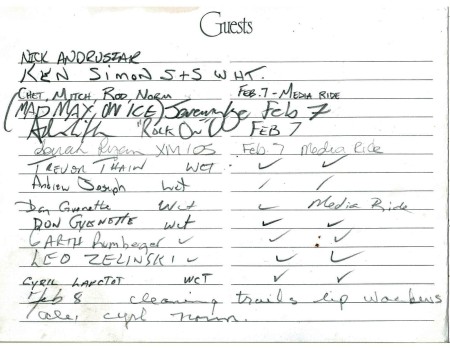 Guests
NICK ANDRUSIAK
KEN SIMON S+S WHT.
CHET, MITCH, ROD, NORM FEB. 7 - MEDIA RIDE
(MAD MAX, ON ICE) Feb 7
"ROCK ON" FEB 7
Sarah Ryan XM105 Feb. 7 Media Ride
TREVOR THAIN WCT ✓ ✓
Andrew Joseph Wct ✓ ✓
Dan Guenette Wct ✓ Media Ride
DON GUENETTE Wct ✓ ✓
GARTH Rumbeger ✓ ✓ ✓
LEO ZELINSKI ✓ ✓ ✓
CYRIL LARCTOT WCT ✓ ✓
Feb 8 cleaning trails
cyrl norm.